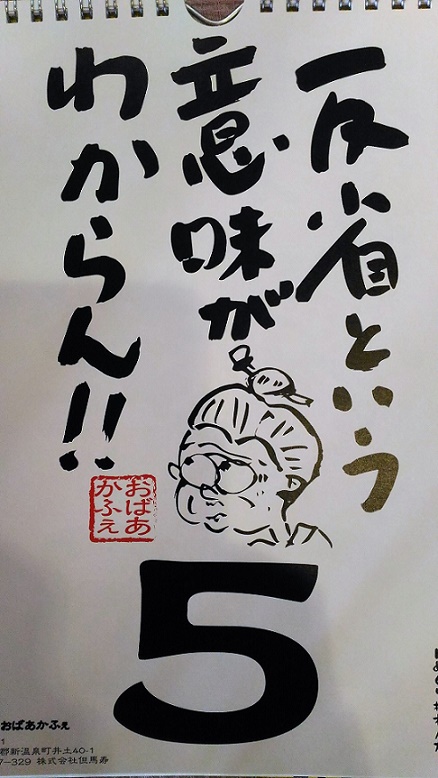 反省という
意味が
わからん!!
おばあ
かふぇ
5
おばあかふぇ
郡新温泉町井土40-1
7-329 株式会社但馬寿